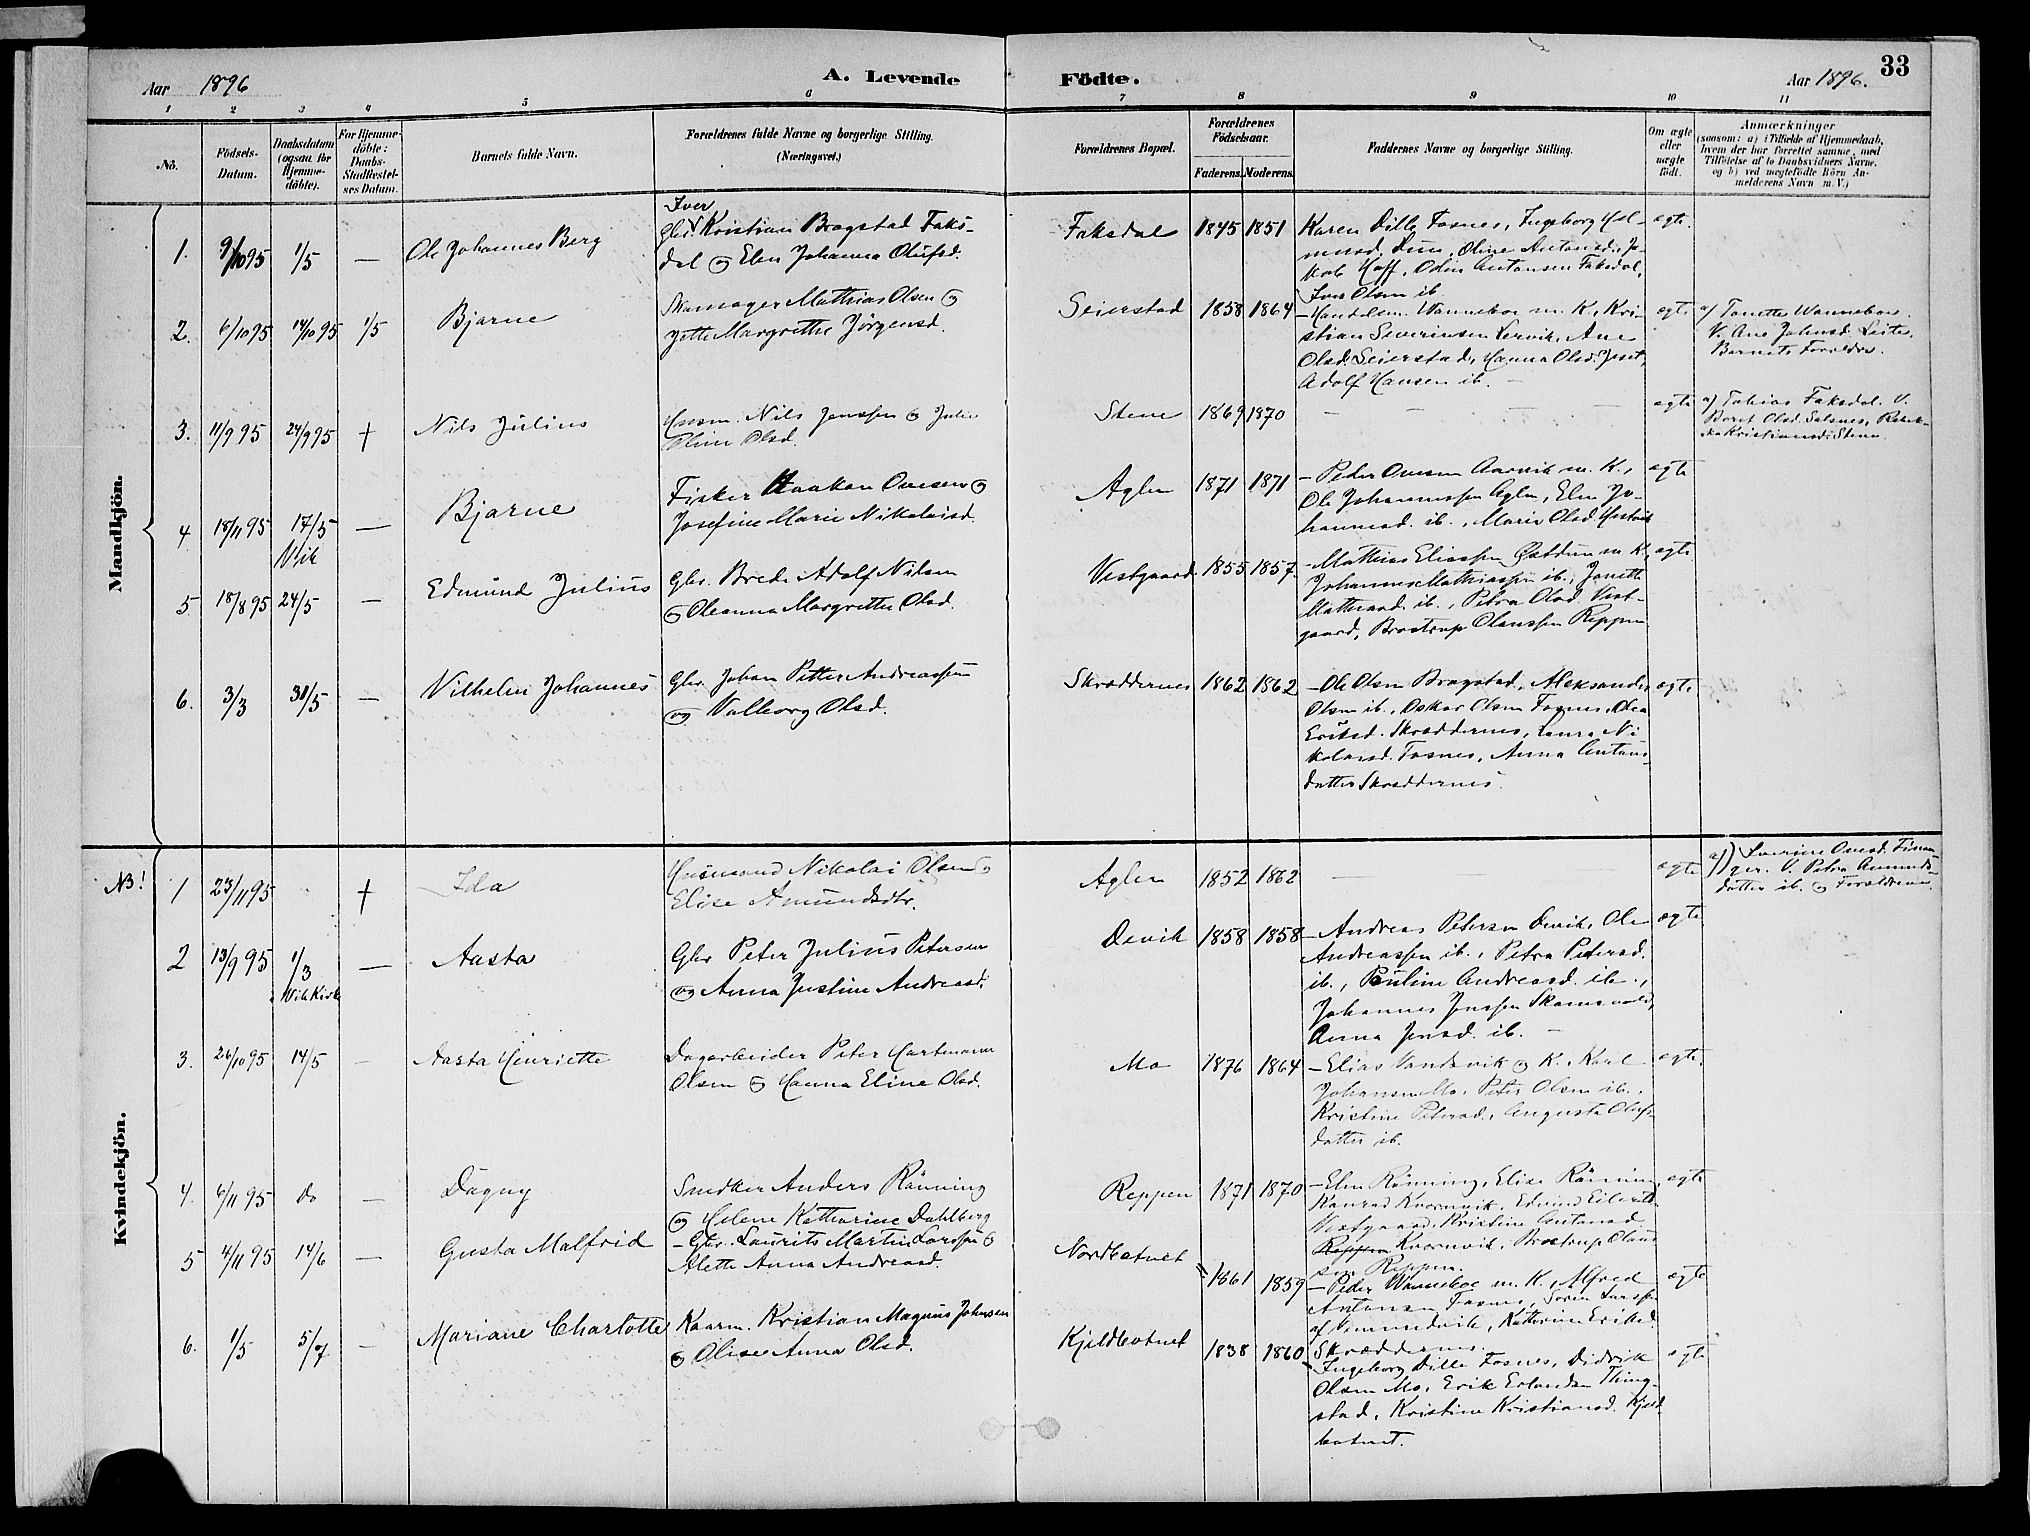 33
Aar 1896
A. Levende Födte.
Aar 1896.
1 2 3 4 5 6 7 8 9 10 11
Nö.
Födsels-Datum.
Daabsdatum (ogsaa for Hjemme-döbte).
For Hjemme-döbte: Daabs-Stadfæstel-ses Datum.
Barnets fulde Navn.
Forældrenes fulde Navne og borgerlige Stilling.
(Næringsvei.)
Forældrenes Bopæl.
Forældrenes Födselsaar.
Faderens. Moderens.
Faddernes Navne og borgerlige Stilling.
Om ægte eller uægte födt.
Anmærkninger
(saasom: a) i Tilfælde af Hjemmedaab,
hvem der har forrettet samme, med
Tilföielse af to Daabsvidners Navne,
og b) ved uægtefödte Börn An-
melderens Navn m. V.)
Mandkjön.
1. 9/10 95 1/5 — Ole Johannes Berg
Iver
Gbr. Kristian Bragstad Faks-
dal og Elen Johanna Olufsd.
Faksdal 1845 1851
Karen Dille Fosnes, Ingeborg Hal-
Dun, Oline Antonsd., Ja-
kob Hoff, Odin Antonsen Faksdal,
Iver Olsen ib
ægte.
2. 6/10 95 14/10 95 1/5 Bjarne
Skomager Mathias Olsen og
Jette Margrethe Jörgensd.
Seierstad 1858 1864
Wannebo m. K., Kri-
stian Severinsen Lervik, Ane
Olsd. Seierstad, Hanna Olsd.
Adolf Hansen ib. —
ægte
a) Tonette Wannebo.
V. Ane Johnsd. Leite,
Barnets Forældre.
3. 11/9 95 24/9 95 † Nils Julius
Husm. Nils Janssen og Julie
Oline Olsd.
Stene 1869 1870
— — — —
ægte
a) Tobias Faksdal. V.
Beret Olsd. Salsnes, Rebek-
ka Kristiansd. Stene
4. 18/11 95 17/5 Vik — Bjarne
Fisker Haakon Ovesen og
Josefine Marie Nikolaisd.
Aglen 1871 1871
— Peder Ovesen Aarvik m. K.,
Ole Johannessen Aglen, Elen Jo-
hannesd. ib., Marie Olsd.
ægte
5. 18/8 95 24/5 — Edmund Julius
Gbr. Brede Adolf Nilsen
og Oleanna Margrethe Olsd.
Vestgaard 1855 1857
— Mathias Eliassen Östdun m K,
Johannes Mathiassen ib., Jonette
Mathiasd. ib., Petra Olsd. Vest-
gaard, Brostrup Olaussen Reppen
ægte.
6. 3/3 31/5 — Vilhelm Johannes
Gbr. Johan Petter Andreassen
og Valborg Olsd.
Skræddernes 1862 1862
— Ole Olsen Bragstad, Aleksander
Olsen ib., Oskar Olsen Fosnes, Olea
Eriksd. Skræddernes, Laura Ni-
kolaisd. Fosnes, Anna Antons-
datter Skræddernes.
ægte
Kvindekjön.
NB! 1 23/11 95 † Ida
Husmand Nikolai Olsen og
Elise Amundsdtr.
Aglen 1852 1862
— —
ægte
a) Severine Ovesd. Finvan-
ger. V. Petra Amunds-
datter ib. og Forældrene.
2 13/9 95 1/3 Vik Kirke — Aasta
Gbr Peter Julius Petersen
og Anna Justine Andreasd.
Devik 1858 1858
— Andreas Petersen Devik, Ole
Andreassen ib., Petra Petersd.
ib., Pauline Andreasd. ib.,
Johannes Jenssen
Anna Jensd. ib. —
ægte.
3. 26/10 95 14/5 — Aasta Henriette
Dagarbeider Peter Hartmann
Olsen og Hanna Eline Olsd.
Mo 1876 1864
— Elias Vandsvik og K., Karl
Johansen Mo, Peter Olsen ib.,
Kristine Petersd., Augusta Olufs-
datter ib.
ægte.
4. 6/11 95 do — Dagny
Snedker Anders Rönning
og Helene Katharine Dahlberg
Reppen 1871 1870
— Elen Rönning, Elise Rönning,
Konrad Kvernvik, Edvind
Vestgaard, Kristine Antonsd.
Reppen Kvernvik, Brostrup Olaus
sen Reppen.
ægte
5 4/11 95 14/6 — Gusta Malfrid
— Gbr. Laurits Martin Larssen og
Alette Anna Andreasd.
Nordbotnet 1861 1859
— Peder Wannebo m. K., Alfred
Antonsen Fosnes, Sören Larssen
af Vemundvik, Katharine Eriksd.
Skræddernes.
ægte
6. 1/5 5/7 — Mariane Charlotte
Kaarm. Kristian Magnus Johnsen
og Olise Anna Olsd.
Kjeldbotnet 1838 1860
Ingeborg Dille Fosnes, Didrik
Olsen Mo, Erik Erlandsen Thing-
stad, Kristine Kristiansd. Kjeld-
botnet.
ægte